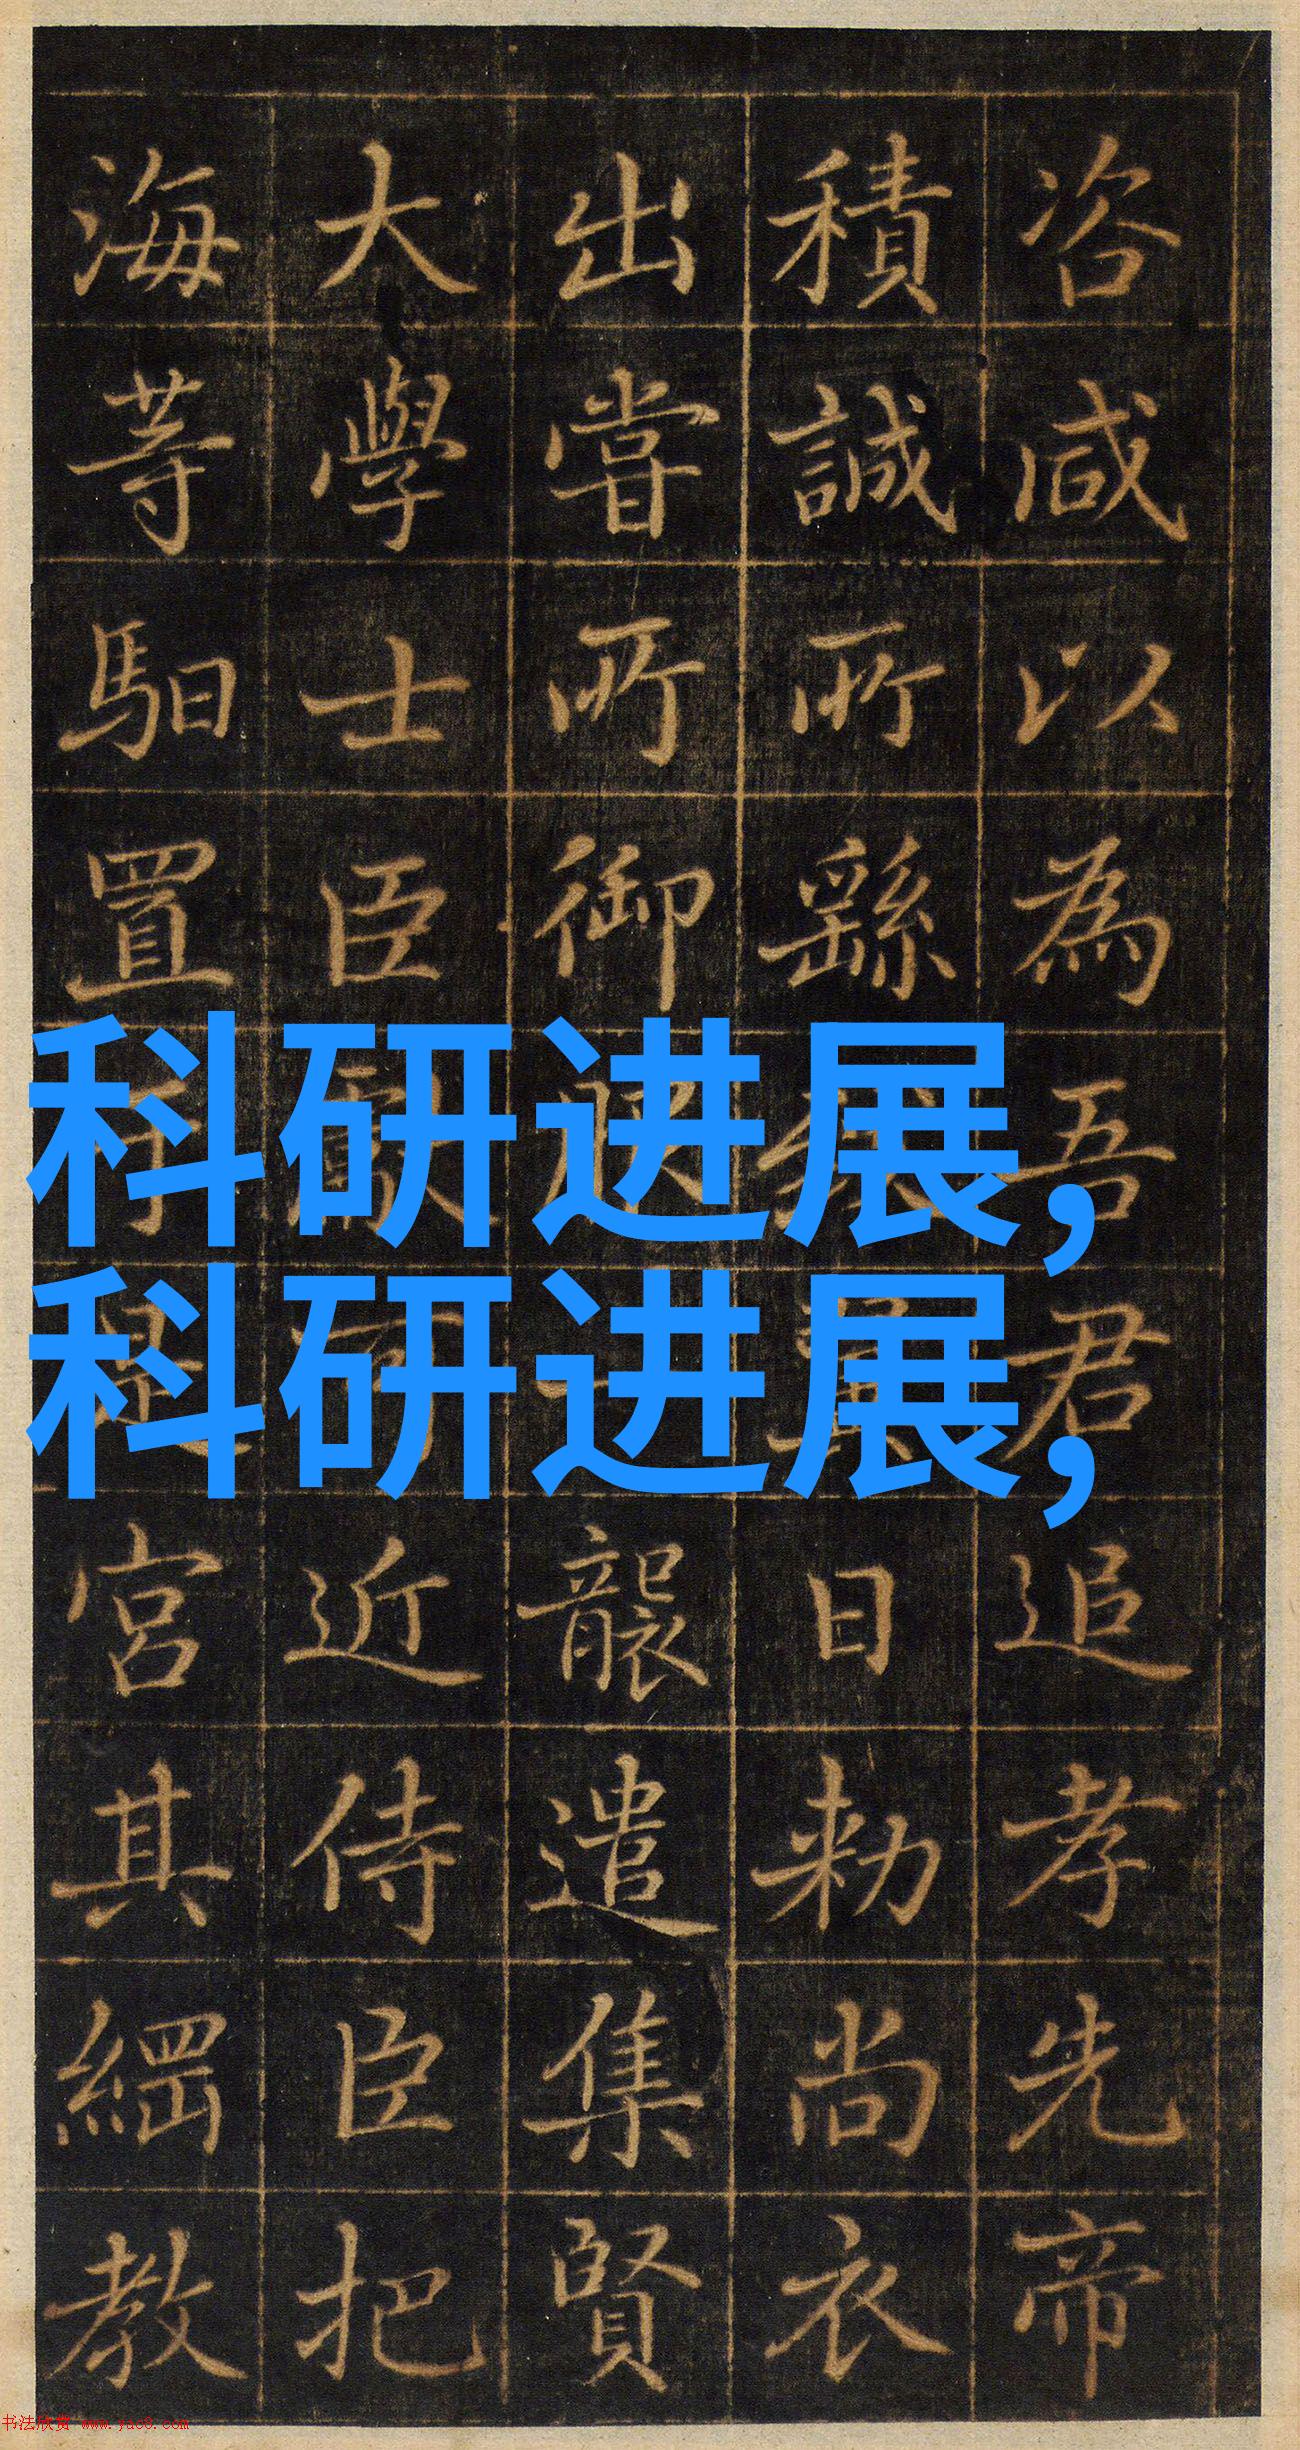 咨咸以為吾君追孝先帝
積誠所繇日勅尚衣
出嘗所御襲遣集賢
大學士臣近侍臣把
海等馹置宮其綱教
科研进展,
科研进展,
书法欣赏 www.yac8.com